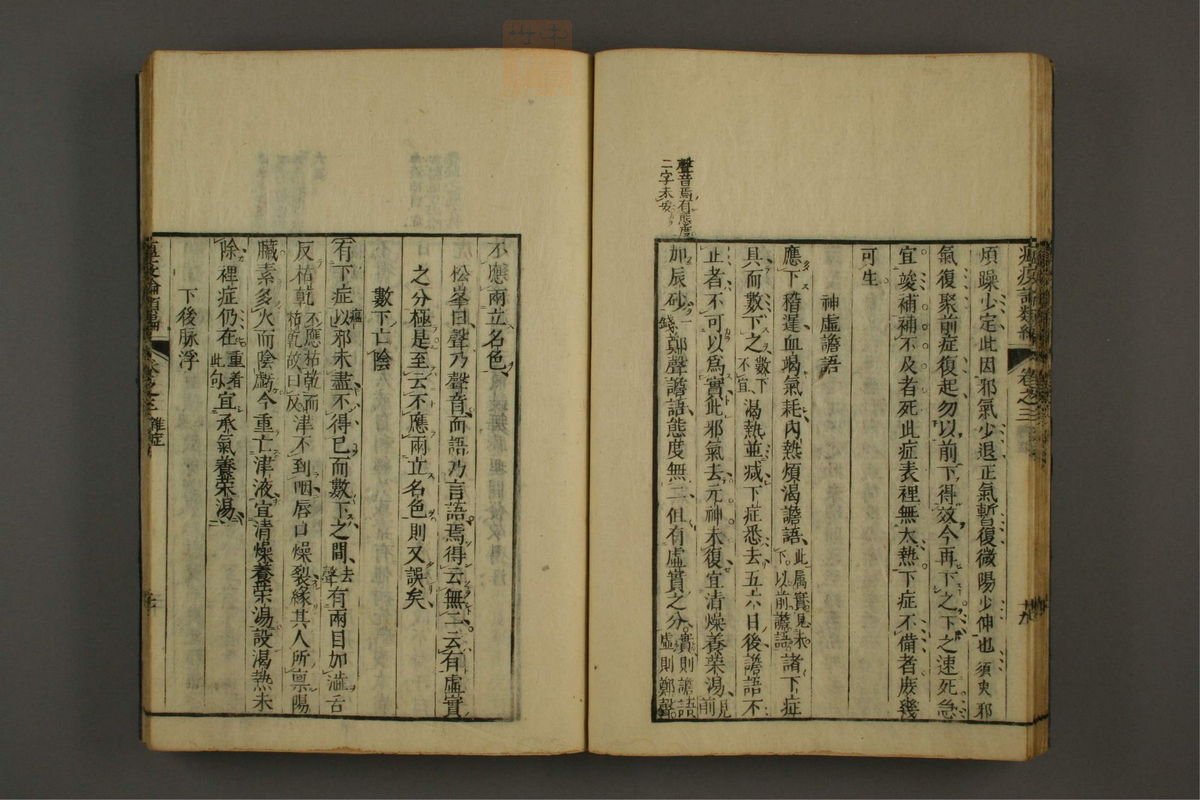 瘟疫論類編 卷之三 十九
煩躁少定此因邪氣少退正氣暫復微陽少伸也須臾邪
氣復聚前症復起勿以前下得效今再下之下之速死急
宜峻補補不及者死此症表裡無大熱下症不備者庶幾
可生
神虛譫語
應下稽遲血竭氣耗內熱煩渴譫語此屬實見未下以前譫語諸下症
具而數下之數下不宜渴熱並減下症悉去五六日後譫語不
止者不可以爲實此邪氣去元神未復宜清燥養榮湯見前
加辰砂一錢鄭聲譫語態度無二但有虛實之分實則譫語虛則鄭聲
聲音焉有態度
二字未妥
不應兩立名色
松峯曰聲乃聲音而語乃言語焉得云無二云有虛實
之分極是至云不應兩立名色則又誤矣
數下亡陰
有下症以瘟邪未盡不得已而數下之間去聲有兩目加澁舌
反枯乾不應枯乾而枯乾故曰反津不到咽唇口燥裂緣其人所禀陽
臟素多火而陰虧今重亡津液宜清燥養榮湯設渴熱未
除裡症仍在重着此句宜承氣養榮湯
下後脉浮
卷之三 雜症